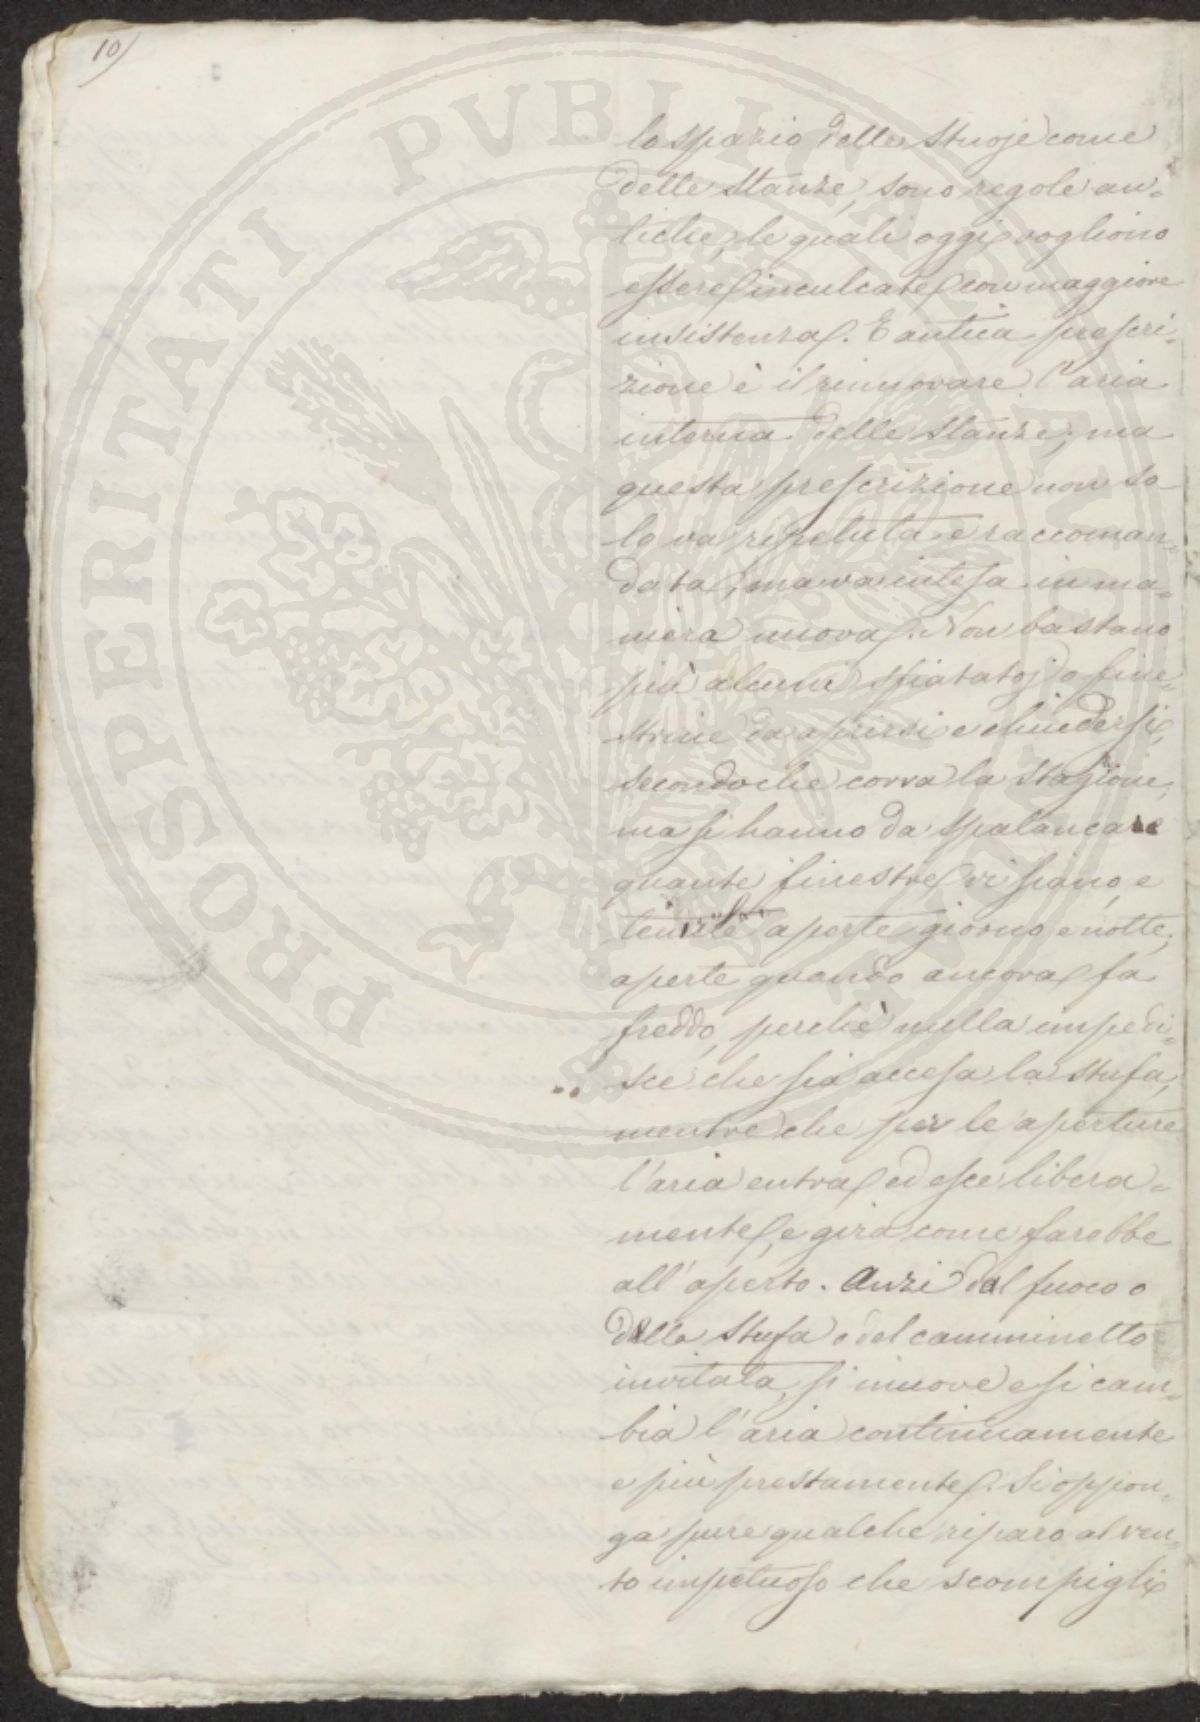 10)
PROSPERITATI PUBLICAE AUGENDAE
lo spazio delle stuoje come
delle stanze, sono regole an-
tiche, le quali oggi vogliono
essere inculcate con maggiore
insistenza. E antica prescri-
zione è il rinnovare l'aria
interna delle stanze; ma
questa prescrizione non so-
lo va ripetuta e raccoman-
data, ma va intesa in ma-
niera nuova. Non bastano
più alcuni sfiatatoj o fine-
strine da aprirsi e chiudersi,
secondo che corra la stagione,
ma si hanno da spalancare
quante finestre vi siano, e
tenerle aperte giorno e notte;
aperte quando ancora fa
freddo, perchè nulla impedi-
sce che sia accesa la stufa,
mentre che per le aperture
l'aria entra ed esce libera-
mente, e gira come farebbe
all'aperto. Anzi dal fuoco o
della stufa o del camminetto
invitata, si muove e si cam-
bia l'aria continuamente
e più prestamente. Si oppon-
ga pure qualche riparo al ven-
to impetuoso che scompigli